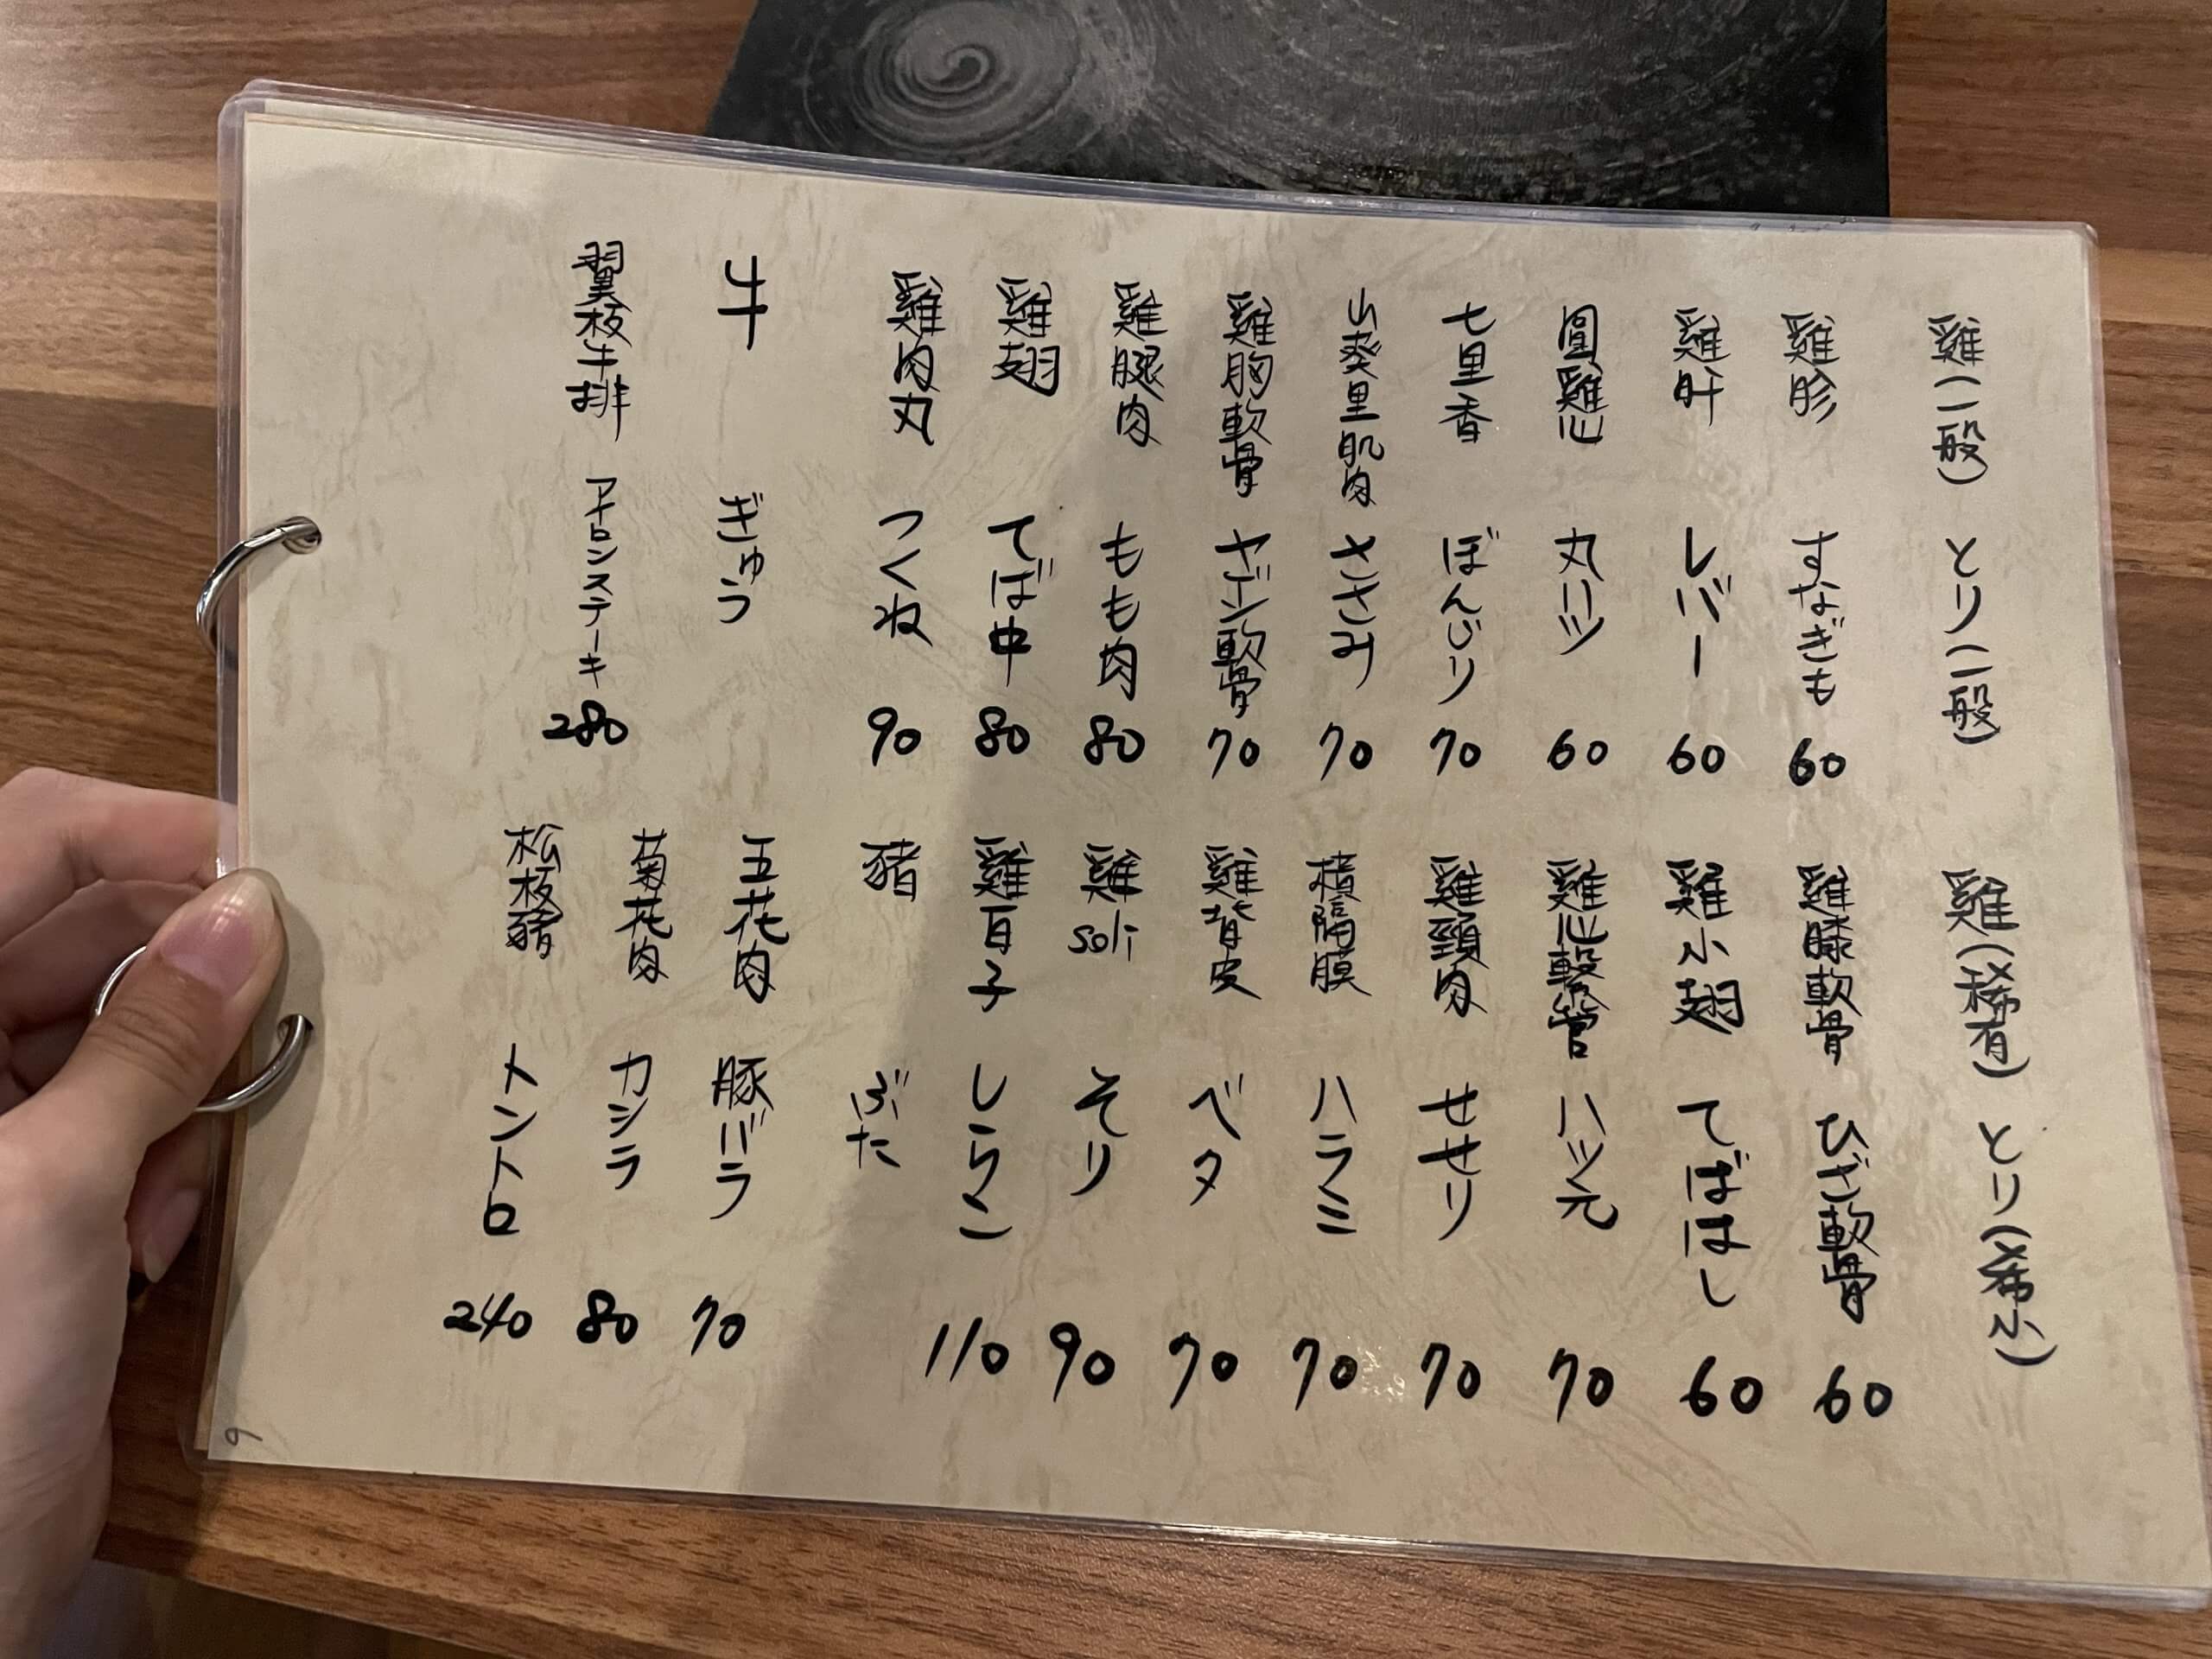 雞(一般) とり(一般)
雞胗 すなぎも 60
雞肝 レバー 60
圓雞心 丸ハツ 60
七里香 ぼんじり 70
山葵里肌肉 ささみ 70
雞胸軟骨 ヤゲン軟骨 70
雞腿肉 もも肉 80
雞翅 てば中 80
雞肉丸 つくね 90
牛 ぎゅう
翼板牛排 アイロンステーキ 280
雞(稀有) とり(希小)
雞膝軟骨 ひざ軟骨 60
雞小翅 てばはし 60
雞心繫管 ハツ元 70
雞頸肉 せせり 70
橫隔膜 ハラミ 70
雞背皮 ベタ 70
雞soli そり 90
雞白子 しらこ 110
豬 ぶた
五花肉 豚バラ 70
菊花肉 カシラ 80
松板豬 トントロ 240
9